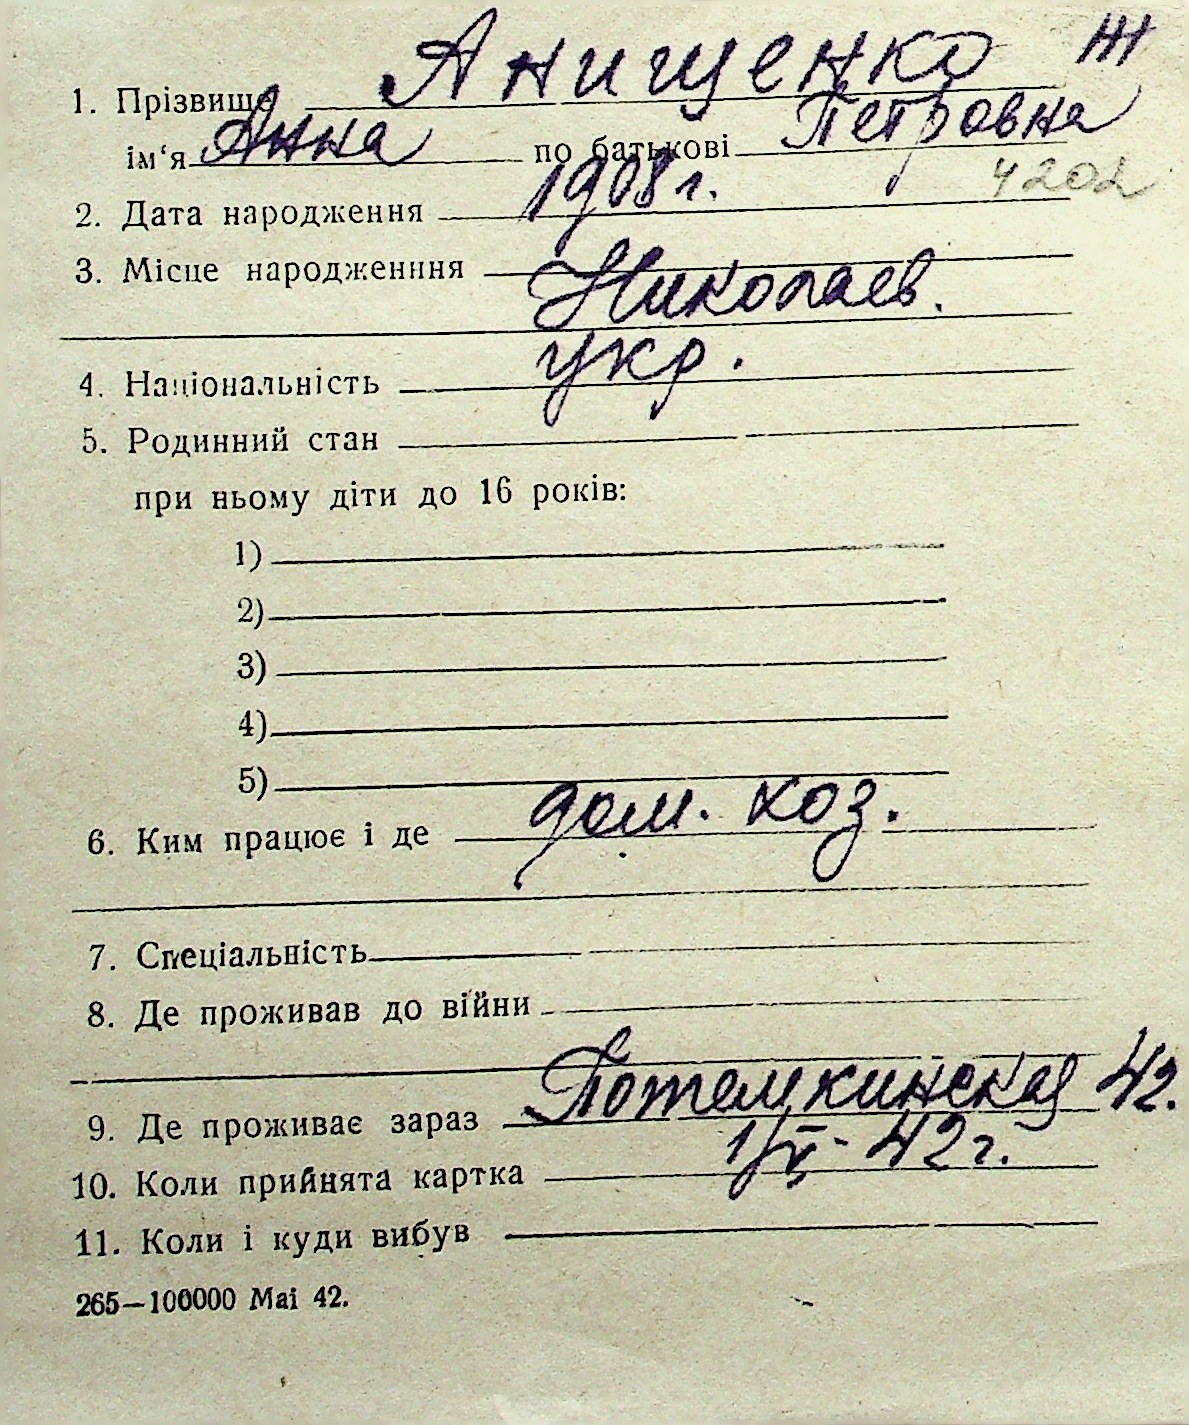 1. Прізвище Анищенко Ж
ім‘я Анна по батькові Петровна
4202
2. Дата народження 1908 г.
3. Місце народженння
Николаев.
4. Національність укр.
5. Родинний стан
при ньому діти до 16 років:
1)
2)
3)
4)
5)
6. Ким працює і де дом. хоз.
7. Спеціальність
8. Де проживав до війни
9. Де проживає зараз Потемкинская 42.
10. Коли прийнята картка 1/X - 42 г.
11. Коли і куди вибув
265—100000 Mai 42.